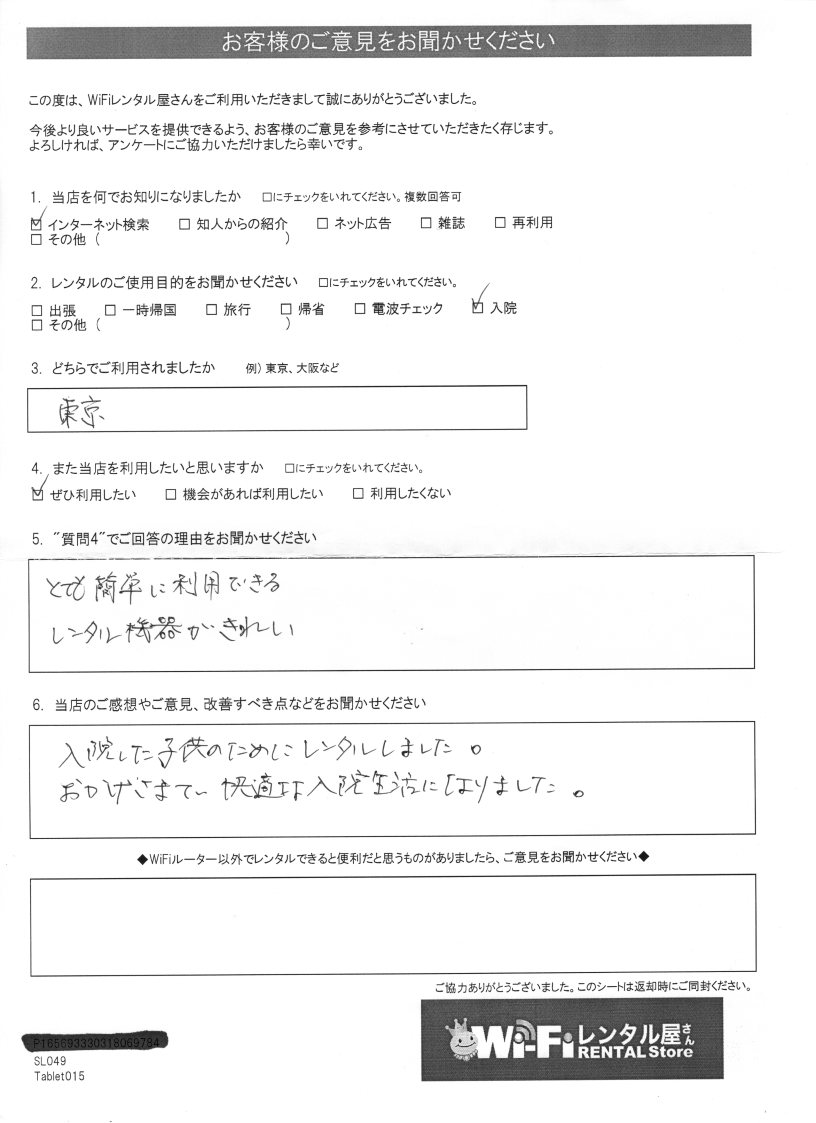 お客様のご意見をお聞かせください
この度は、WiFiレンタル屋さんをご利用いただきまして誠にありがとうございました。
今後より良いサービスを提供できるよう、お客様のご意見を参考にさせていただきたく存じます。
よろしければ、アンケートにご協力いただけましたら幸いです。
1. 当店を何でお知りになりましたか □にチェックをいれてください。複数回答可
☑ インターネット検索 □ 知人からの紹介 □ ネット広告 □ 雑誌 □ 再利用
□ その他 ( )
2. レンタルのご使用目的をお聞かせください □にチェックをいれてください。
□ 出張 □ 一時帰国 □ 旅行 □ 帰省 □ 電波チェック ☑ 入院
□ その他 ( )
3. どちらでご利用されましたか 例) 東京、大阪など
東京
4. また当店を利用したいと思いますか □にチェックをいれてください。
☑ ぜひ利用したい □ 機会があれば利用したい □ 利用したくない
5. "質問4"でご回答の理由をお聞かせください
とても簡単に利用できる
レンタル機器がきれい
6. 当店のご感想やご意見、改善すべき点などをお聞かせください
入院した子供のためにレンタルしました。
おかげさまで快適な入院生活になりました。
◆WiFiルーター以外でレンタルできると便利だと思うものがありましたら、ご意見をお聞かせください◆
ご協力ありがとうございました。このシートは返却時にご同封ください。
Wi-Fiレンタル屋さん
RENTAL Store
SL049
Tablet015